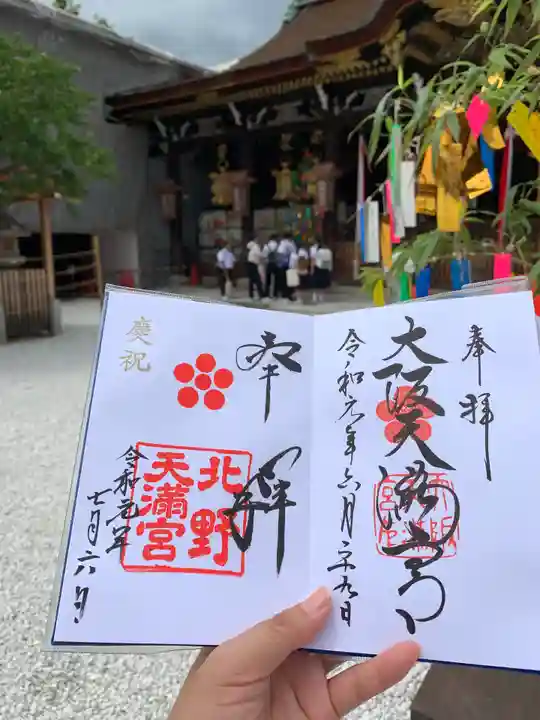 奉拝
大阪天満宮
令和元年六月二十九日
奉拝
慶祝
北野
天満宮
令和元年
七月六日